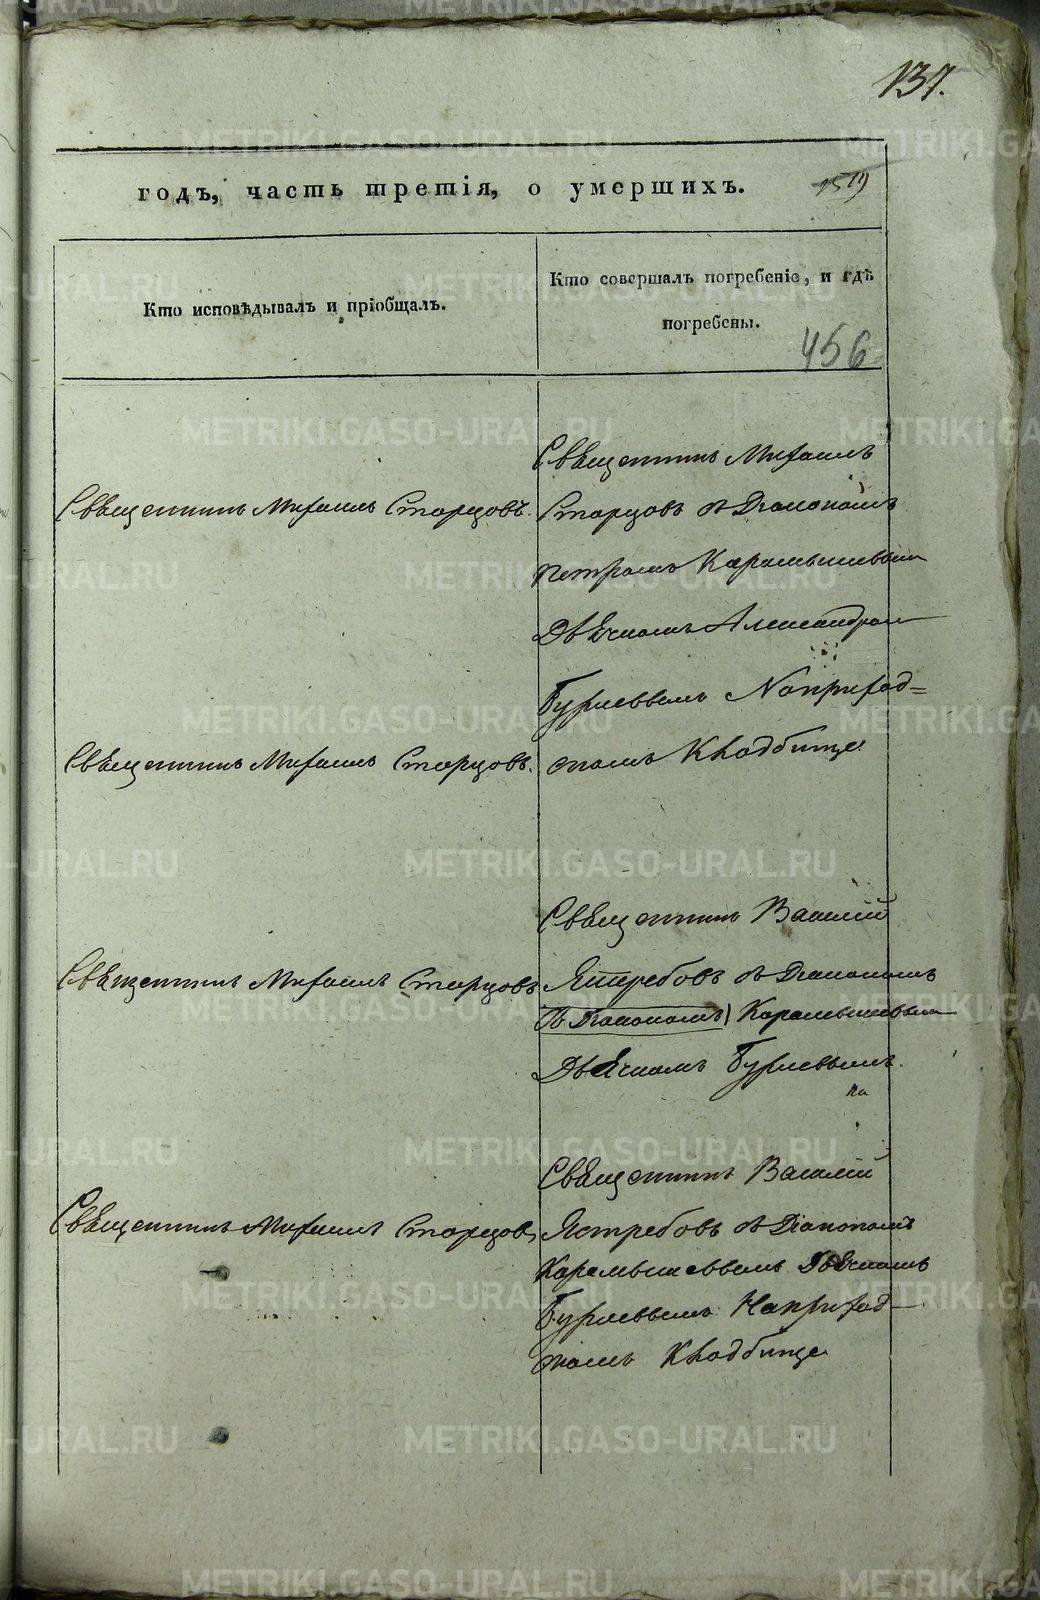 137.
годъ, часть третія, о умершихъ.
1519
Кто исповѣдывалъ и пріобщалъ.
Кто совершалъ погребеніе, и гдѣ
погребены.
456
Священникъ Михаилъ Старцовъ.
Священникъ Михаилъ
Старцовъ съ Діакономъ
Петромъ Карамышевым
Дьячкомъ Александром
Бурневымъ На приход=
скомъ Кладбище
Священникъ Михаилъ Старцовъ.
Священникъ Василій
Ястребовъ съ Діакономъ
Діакономъ) Карамышевым
Дьячкомъ
на
Священникъ Михаилъ Старцовъ
Священникъ Василій
Ястребовъ съ Діакономъ
Карамышевымъ Дьячкомъ
На приход-
скомъ Кладбище
Священникъ Михаилъ Старцовъ
METRIKI.GASO-URAL.RU